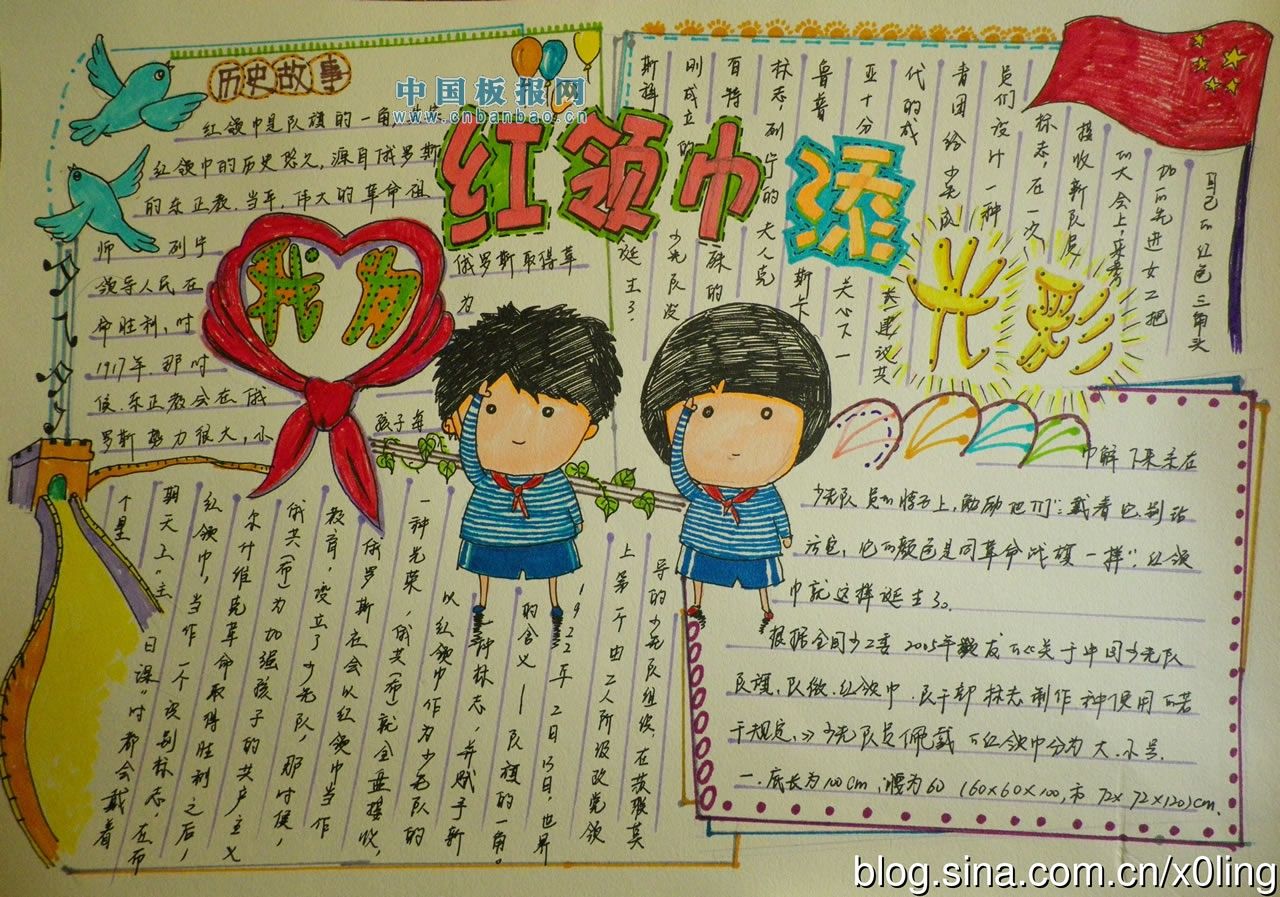 历史故事
中国板报网
www.cnbanbao.cn
我为
红领巾添
光彩
红领巾是队旗的一角
红领巾的历史悠久,源自俄罗斯
的东正教.当年,伟大的革命祖
师 列宁
领导人民在
俄罗斯取得革
命胜利,时
为
1917年.那时
候.东正教会在俄
罗斯势力很大,小
孩子每
个星
期天上"主
日课"时都会戴着
红领巾,当作一个识别标志,在布
尔什维克革命取得胜利之后,
俄共(布)为加强孩子的共产主义
教育,变立了少先队,那时便,
俄罗斯社会以红领巾当作
一种光荣,俄共(布)就全盘接收,
以红领巾作为少先队的
一种标志,并赋予新
的含义——队旗的一角。
1922年2日13日,世界
上第一个由工人阶级政党领
导的少先队组织,在莫斯科
斯诞
诞生了.
刚成立的
少先队没
百特
殊的
标志,列宁的夫人克
鲁普
斯卡
亚十分
关心下一
代的成
长建议共
青团给少先成
员们设计一种
标志,在一次
接收新队员
的大会上,来参
加的先进女工把
自己的红色三角头
巾解下来系在
少先队员的脖子上,勉励他们:"戴着它,别玷
污它,它的颜色是同革命战旗一样".红领
巾就这样诞生了。
根据全国少工委2005年颁发的《关于中国少先队
队旗、队徽.红领巾.队干部标志制作种使用的若
干规定,》少先队员佩戴的红领巾分为大.小号.
一.底长为100cm,腰为60(60×60×100,市72×72×120)cm.
blog.sina.com.cn/x0ling